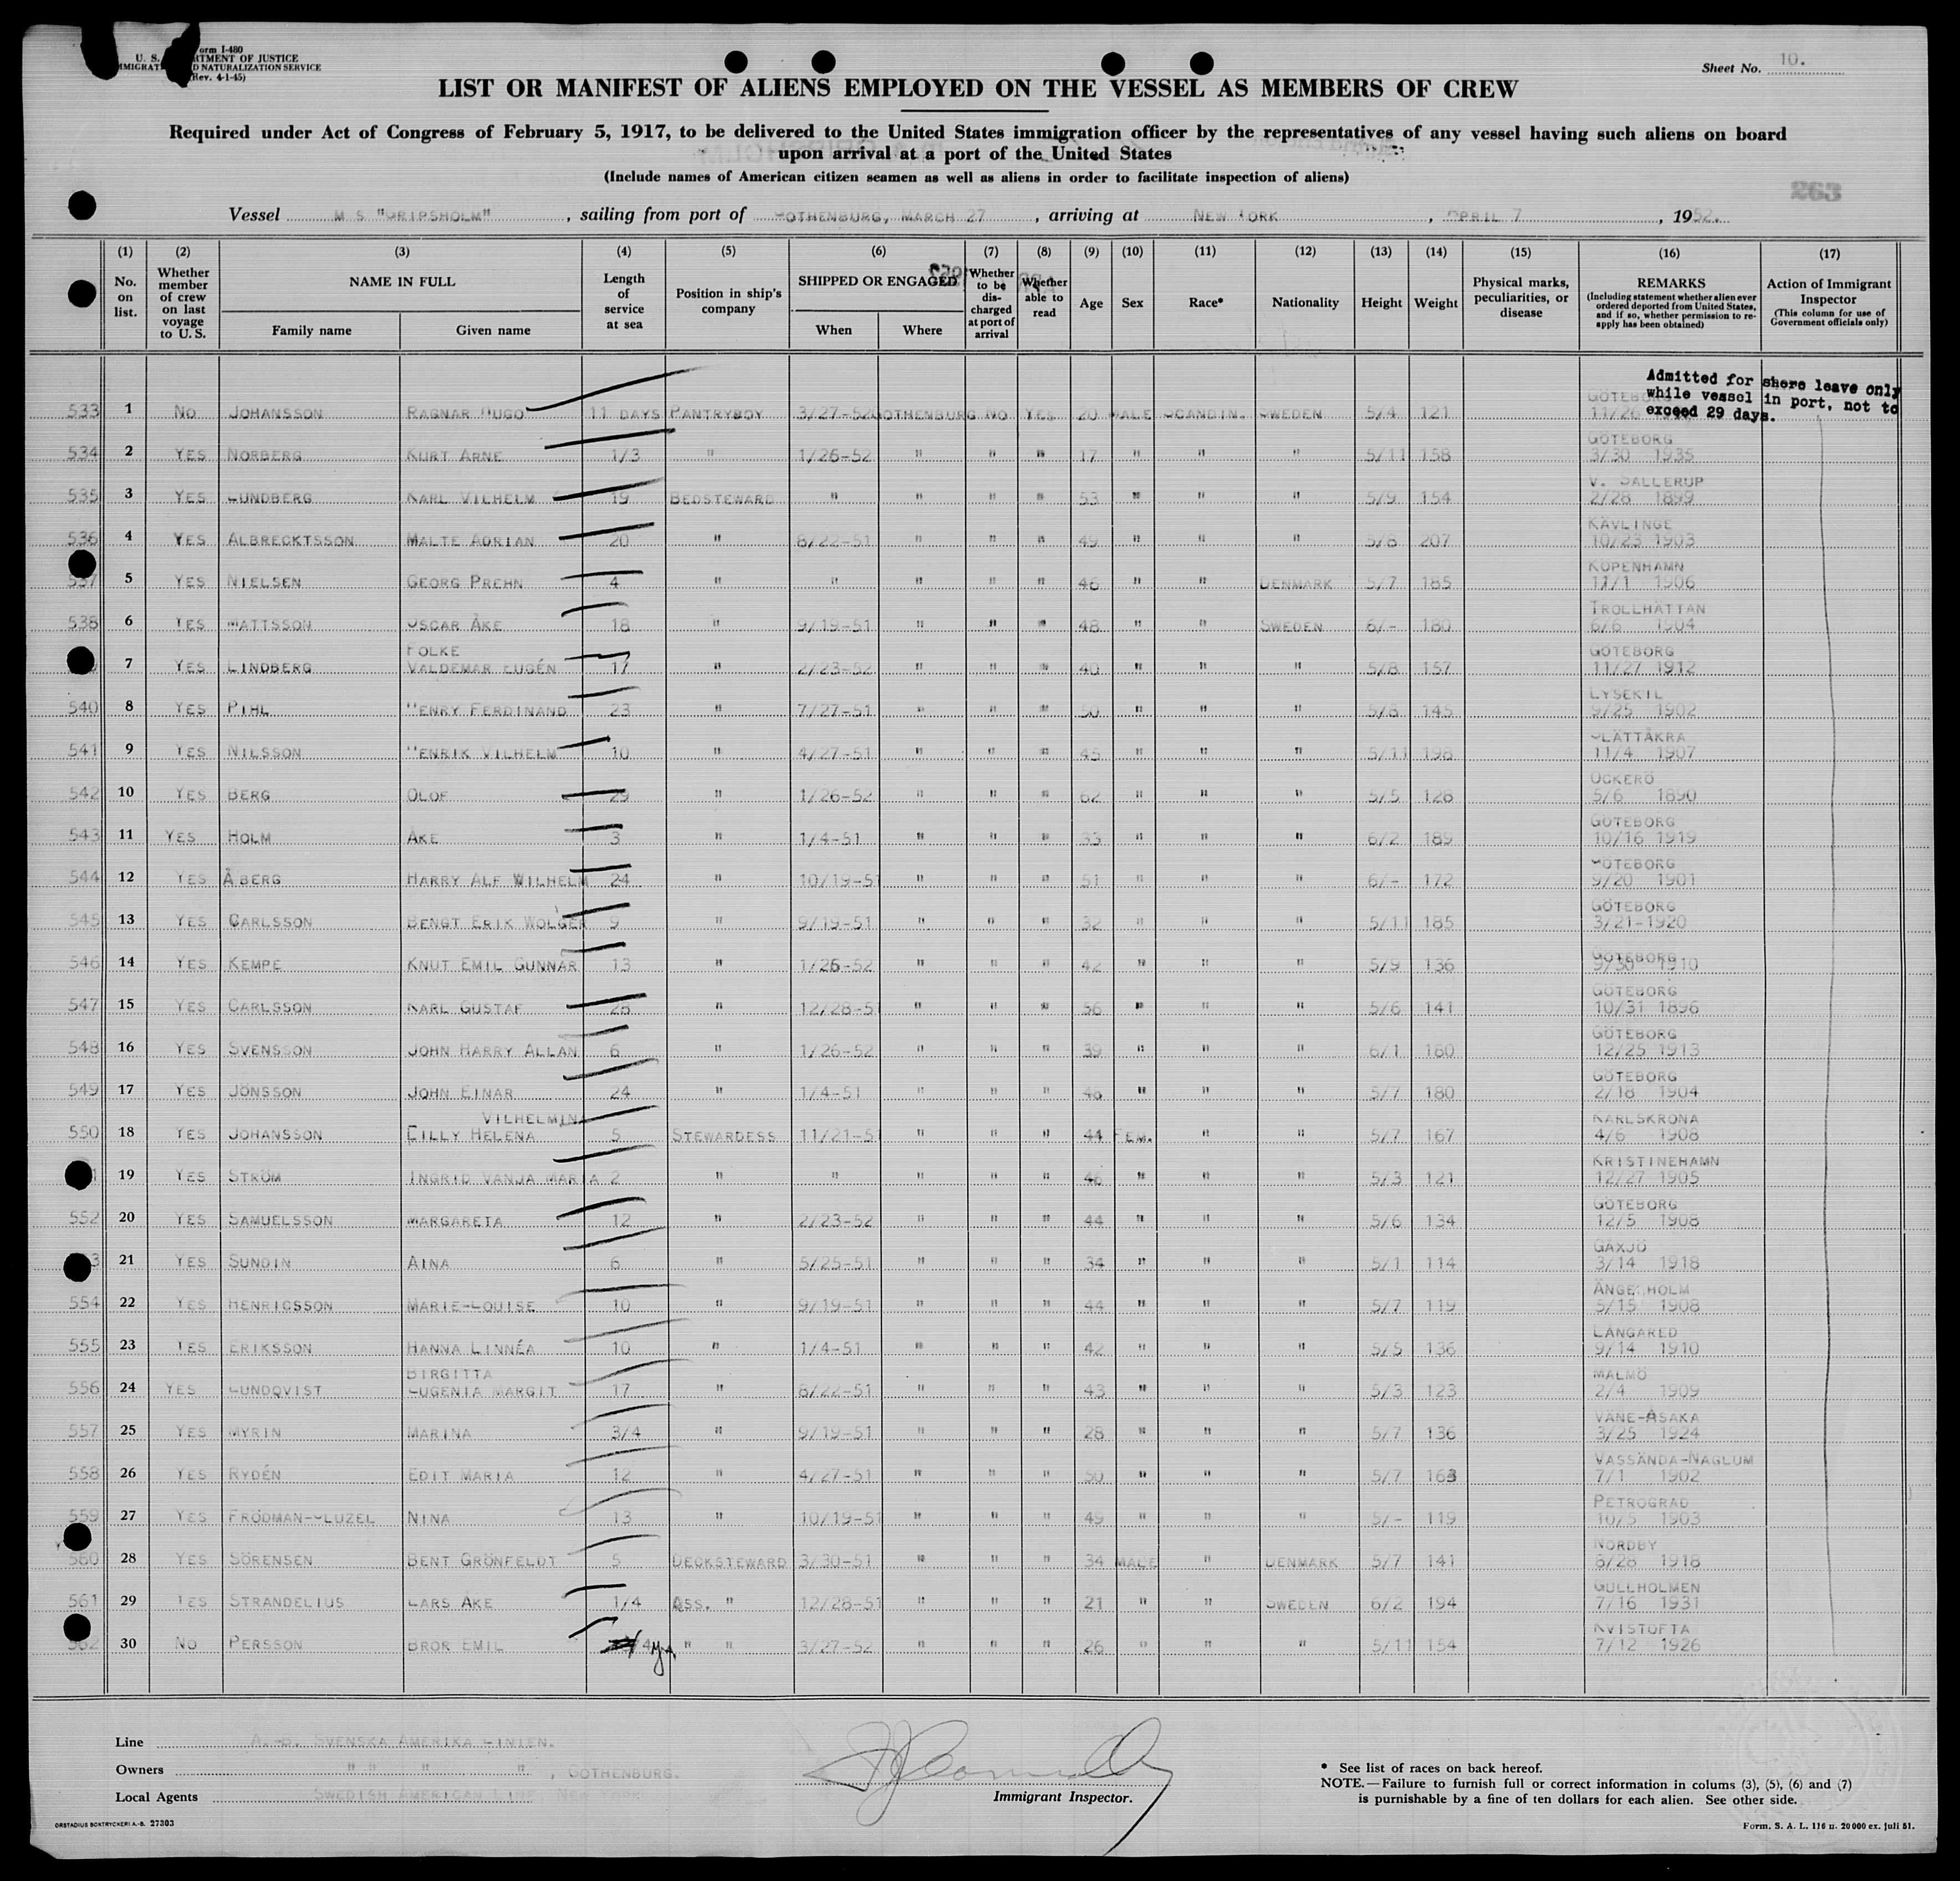 Form I-480
U. S. DEPARTMENT OF JUSTICE
IMMIGRATION AND NATURALIZATION SERVICE
(Rev. 4-1-45)
Sheet No. 10.
LIST OR MANIFEST OF ALIENS EMPLOYED ON THE VESSEL AS MEMBERS OF CREW
Required under Act of Congress of February 5, 1917, to be delivered to the United States immigration officer by the representatives of any vessel having such aliens on board
upon arrival at a port of the United States
(Include names of American citizen seamen as well as aliens in order to facilitate inspection of aliens)
263
Vessel M S "GRIPSHOLM", sailing from port of GOTHENBURG, MARCH 27, arriving at NEW YORK, APRIL 7, 1952.
(1) No. on list. (2) Whether member of crew on last voyage to U. S. (3) NAME IN FULL Family name Given name (4) Length of service at sea (5) Position in ship's company (6) SHIPPED OR ENGAGED When Where (7) Whether to be discharged at port of arrival (8) Whether able to read (9) Age (10) Sex (11) Race* (12) Nationality (13) Height (14) Weight (15) Physical marks, peculiarities, or disease (16) REMARKS (Including statement whether alien ever ordered deported from United States, and if so, whether permission to re-apply has been obtained) (17) Action of Immigrant Inspector (This column for use of Government officials only)
Admitted for shore leave only
while vessel in port, not to
exceed 29 days.
533 1 No JOHANSSON RAGNAR HUGO 11 DAYS PANTRYBOY 3/27-52 GOTHENBURG NO YES 20 MALE SCANDIN. SWEDEN 5/4 121 GÖTEBORG 11/26
534 2 YES NORBERG KURT ARNE 1/3 " 1/26-52 " " " 17 " " " 5/11 158 GÖTEBORG 3/30 1935
535 3 YES LUNDBERG KARL VILHELM 19 BEDSTEWARD " " " " 53 " " " 5/9 154 V. SALLERUP 2/28 1899
536 4 YES ALBRECKTSSON MALTE ADRIAN 20 " 8/22-51 " " " 49 " " " 5/8 207 KÄVLINGE 10/23 1903
537 5 YES NIELSEN GEORG PREHN 4 " " " " " 46 " " DENMARK 5/7 185 KÖPENHAMN 11/1 1906
538 6 YES MATTSSON OSCAR ÅKE 18 " 9/19-51 " " " 48 " " SWEDEN 6/- 180 TROLLHÄTTAN 6/6 1904
7 YES LINDBERG FOLKE VALDEMAR EUGÉN 17 " 2/23-52 " " " 40 " " " 5/8 157 GÖTEBORG 11/27 1912
540 8 YES PIHL HENRY FERDINAND 23 " 7/27-51 " " " 50 " " " 5/8 145 LYSEKIL 9/25 1902
541 9 YES NILSSON HENRIK VILHELM 10 " 4/27-51 " " " 45 " " " 5/11 198 SLÄTTÅKRA 11/4 1907
542 10 YES BERG OLOF 29 " 1/26-52 " " " 62 " " " 5/5 128 ÖCKERÖ 5/6 1890
543 11 YES HOLM ÅKE 3 " 1/4-51 " " " 33 " " " 6/2 189 GÖTEBORG 10/16 1919
544 12 YES ÅBERG HARRY ALF WILHELM 24 " 10/19-51 " " " 51 " " " 6/- 172 GÖTEBORG 9/20 1901
545 13 YES CARLSSON BENGT ERIK WOLGER 9 " 9/19-51 " " " 32 " " " 5/11 185 GÖTEBORG 3/21-1920
546 14 YES KEMPE KNUT EMIL GUNNAR 13 " 1/26-52 " " " 42 " " " 5/9 136 GÖTEBORG 9/30 1910
547 15 YES CARLSSON KARL GUSTAF 26 " 12/28-51 " " " 56 " " " 5/6 141 GÖTEBORG 10/31 1896
548 16 YES SVENSSON JOHN HARRY ALLAN 6 " 1/26-52 " " " 39 " " " 6/1 180 GÖTEBORG 12/25 1913
549 17 YES JONSSON JOHN EINAR 24 " 1/4-51 " " " 48 " " " 5/7 180 GÖTEBORG 2/18 1904
550 18 YES JOHANSSON VILHELMINA CILLY HELENA 5 STEWARDESS 11/21-51 " " " 44 FEM. " " 5/7 167 KARLSKRONA 4/6 1908
19 YES STRÖM INGRID VANJA MARIA 2 " " " " " 46 " " " 5/3 121 KRISTINEHAMN 12/27 1905
552 20 YES SAMUELSSON MARGARETA 12 " 2/23-52 " " " 44 " " " 5/6 134 GÖTEBORG 12/5 1908
21 YES SUNDIN AINA 6 " 5/25-51 " " " 34 " " " 5/1 114 GÅXJÖ 3/14 1918
554 22 YES HENRICSSON MARIE-LOUISE 10 " 9/19-51 " " " 44 " " " 5/7 119 ÄNGELHOLM 5/15 1908
555 23 YES ERIKSSON HANNA LINNÉA 10 " 1/4-51 " " " 42 " " " 5/5 136 LÅNGARED 9/14 1910
556 24 YES LUNDQVIST BIRGITTA EUGENIA MARGIT 17 " 8/22-51 " " " 43 " " " 5/3 123 MALMÖ 2/4 1909
557 25 YES MYRIN MARINA 3/4 " 9/19-51 " " " 28 " " " 5/7 136 VÄNE-ÅSAKA 3/25 1924
558 26 YES RYDÉN EDIT MARIA 12 " 4/27-51 " " " 50 " " " 5/7 163 VASSÄNDA-NAGLUM 7/1 1902
559 27 YES FRÖDMAN-CLUZEL NINA 13 " 10/19-51 " " " 49 " " " 5/- 119 PETROGRAD 10/5 1903
560 28 YES SÖRENSEN BENT GRÖNFELDT 5 DECKSTEWARD 3/30-51 " " " 34 MALE " DENMARK 5/7 141 NORDBY 8/28 1918
561 29 YES STRANDELIUS LARS ÅKE 1/4 ASS. " 12/28-51 " " " 21 " " SWEDEN 6/2 194 GULLHOLMEN 7/16 1931
562 30 No PERSSON BROR EMIL 4 yr " " 3/27-52 " " " 26 " " " 5/11 154 KVISTOFTA 7/12 1926
Line A.-B. SVENSKA AMERIKA LINIEN.
Owners " " " ", GOTHENBURG.
Local Agents SWEDISH AMERICAN LINE, NEW YORK
Immigrant Inspector.
* See list of races on back hereof.
NOTE.—Failure to furnish full or correct information in colums (3), (5), (6) and (7)
is punishable by a fine of ten dollars for each alien. See other side.
ORSTADIUS BOKTRYCKERI A.-B. 27303
Form. S. A. L. 116 u. 20000 ex. juli 51.